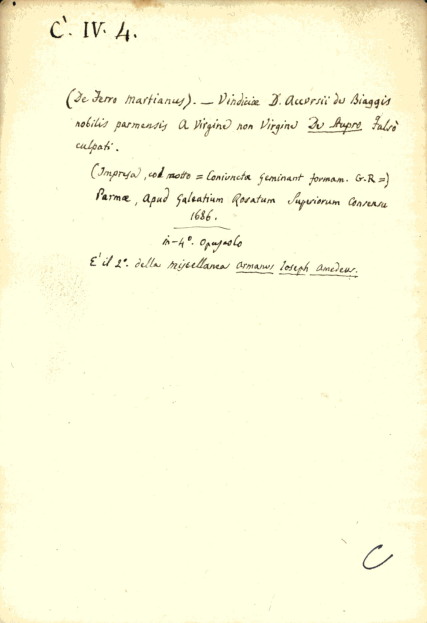 C. IV. 4.
(De Ferro Martianus). — Vindiciæ D. Accursii de Biaggis
nobilis parmensis A Virgine non Virgine De Stupro Falsò
culpati.
(Impresa, col motto = Coniunctæ geminant formam. G. R =)
Parmæ, Apud Galeatium Rosatum Superiorum Consensu
1686.
in-4°. Opuscolo
E' il 2°. della miscellanea Armanus Joseph Amedeus.
C